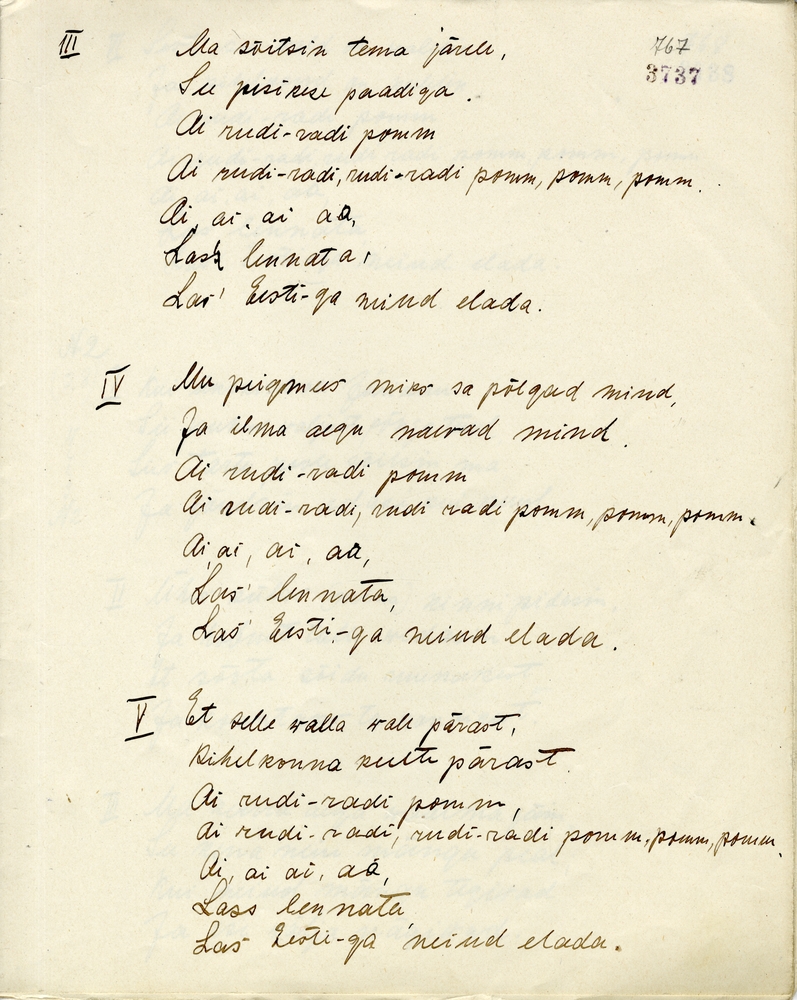 767
3737
III Ma sõitsin tema järele,
See pisikese paadiga.
Ai rudi-radi pomm
Ai rudi-radi, rudi-radi pomm, pomm, pomm.
Ai, ai, ai aa,
Lask lennata,
Las' Eesti-ga neiud elada.
IV Mu peigmees miks sa põlgad mind,
Ja ilma aegu naerad mind.
Ai rudi-radi pomm
Ai rudi-radi, rudi radi pomm, pomm, pomm.
Ai, ai, ai, aa,
Las' lennata,
Las' Eesti-ga neiud elada.
V Et selle walla wale pärast,
Kihelkonna keelte pärast.
Ai rudi-radi pomm,
Ai rudi-radi, rudi-radi pomm, pomm, pomm.
Ai, ai ai, aa,
Lass lennata,
Las Eesti-ga neiud elada.